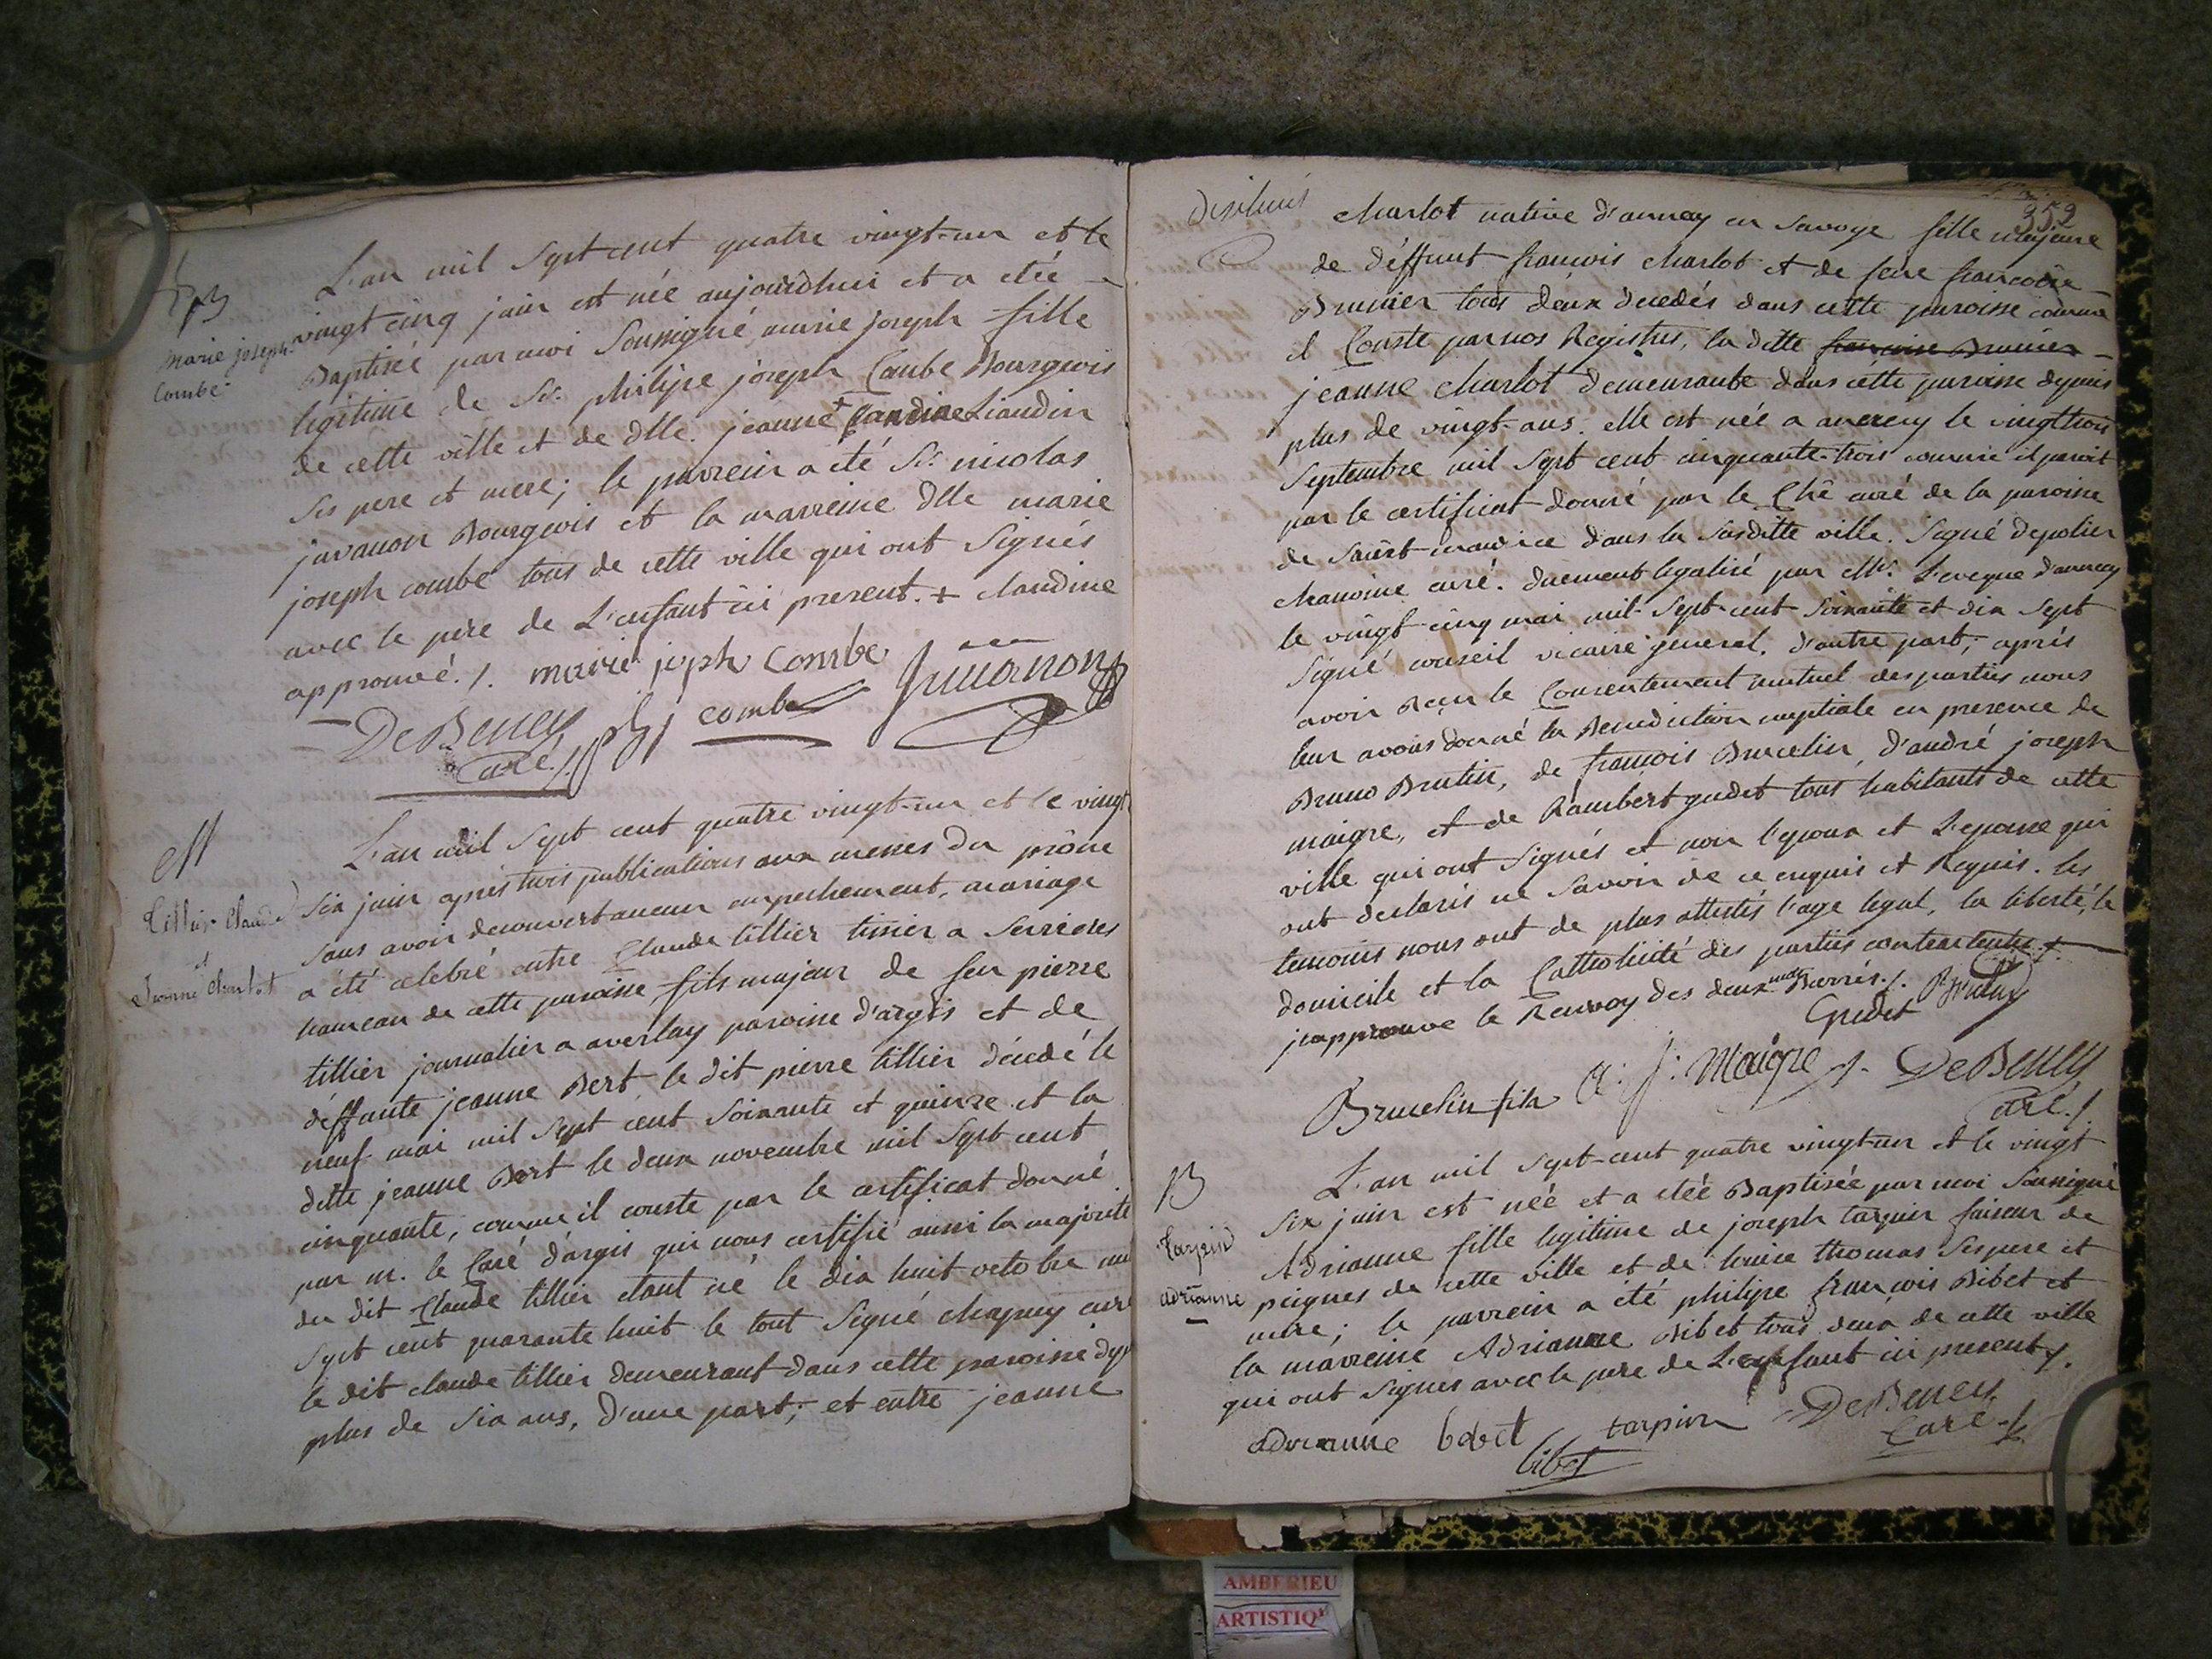 B
marie joseph
Combe
L'an mil sept cent quatre vingt-un et le
vingt cinq juin est née aujourdhui et a etée
Baptisée par moi Soussigné, marie joseph fille
legitime de Sr. philipe joseph Combe Bourgeois
de cette ville et de dlle. jeanne + Liaudin
ses pere et mere; le parrein a été Sr. nicolas
juvanon Bourgeois et la marreine dlle marie
joseph combe tous de cette ville qui ont signés
avec le pere de L'enfant ici present. + claudine
approuvé ./. marie joseph Combe Juvanon
DeBeney phj combe
Curé ./.
M
tillier Claude
et
Jeanne Charlot
L'an mil sept cent quatre vingt-un et le vingt
six juin après trois publications aux messes du prône
sans avoir decouvert aucun empechement, mariage
a été celebré entre Claude tillier tissier a serrieres
hameau de cette paroisse fils majeur de feu pierre
tillier journalier a averlay paroisse d'argis et de
déffunte jeanne Bert le dit pierre tillier décedé le
neuf mai mil sept cent soixante et quinze et la
ditte jeanne Bert le deux novembre mil sept cent
cinquante, comme il conste par le certificat donné
par m. le Curé d'argis qui nous certifie aussi la majorité
du dit Claude tillier etant né le dix huit octobre mil
sept cent quarante huit le tout signé chapuy curé
le dit claude tillier demeurant dans cette paroisse dep
plus de six ans, d'une part; et entre jeanne
352
charlot native d'annecy en savoye fille majeure
de déffunt francois charlot et de feue francoise
Brunier tous deux decedés dans cette paroisse comme
il Conste par nos Registres, la ditte francoise Brunier
jeanne charlot demeurante dans cette paroisse depuis
plus de vingt-ans. elle est née a annecy le vingt trois
septembre mil sept cent cinquante-trois comme il paroit
par le certificat donné par le Chē curé de la paroisse
de saint-maurice dans la susditte ville. signé depolier
chanoine curé. duement legalisé par Mr. L'eveque d'annecy
le vingt-cinq mai mil-sept-cent soixante et dix sept
signé conseil vicaire general, d'autre part; après
avoir Recu le Consentement mutuel des parties nous
leur avons donné la Benediction nuptiale en presence de
Bruno Brutin, de françois Brucelin, d'andré joseph
maigre, et de Rambert gudet tous habitants de cette
ville qui ont signés et non l'epoux et L'epouse qui
ont declarés ne savoir de ce enquis et Requis. les
temoins nous ont de plus attestés l'age legal, la liberté, le
domicile et la Catholicité des parties contractentes ./.
japprouve le Renvoy des deux mots Barrés ./. Gudet Brutin
Brucelin fils A. J. Maigre ./. DeBeney
Curé ./.
B
tarpin
adrianne
L'an mil sept-cent quatre vingt-un et le vingt
six juin est néé et a etée Baptisée par moi Soussigné
Adrianne fille legitime de joseph tarpin faiseur de
peignes de cette ville et de louise thomas ses pere et
mere; le parrein a été philipe francois Bibet et
la marreine Adrianne Bibet tous deux de cette ville
qui ont signes avec le pere de L'enfant ici present ./.
adrianne bebet tarpin DeBeney
bibet Curé ./.
AMBERIEU
ARTISTIQ